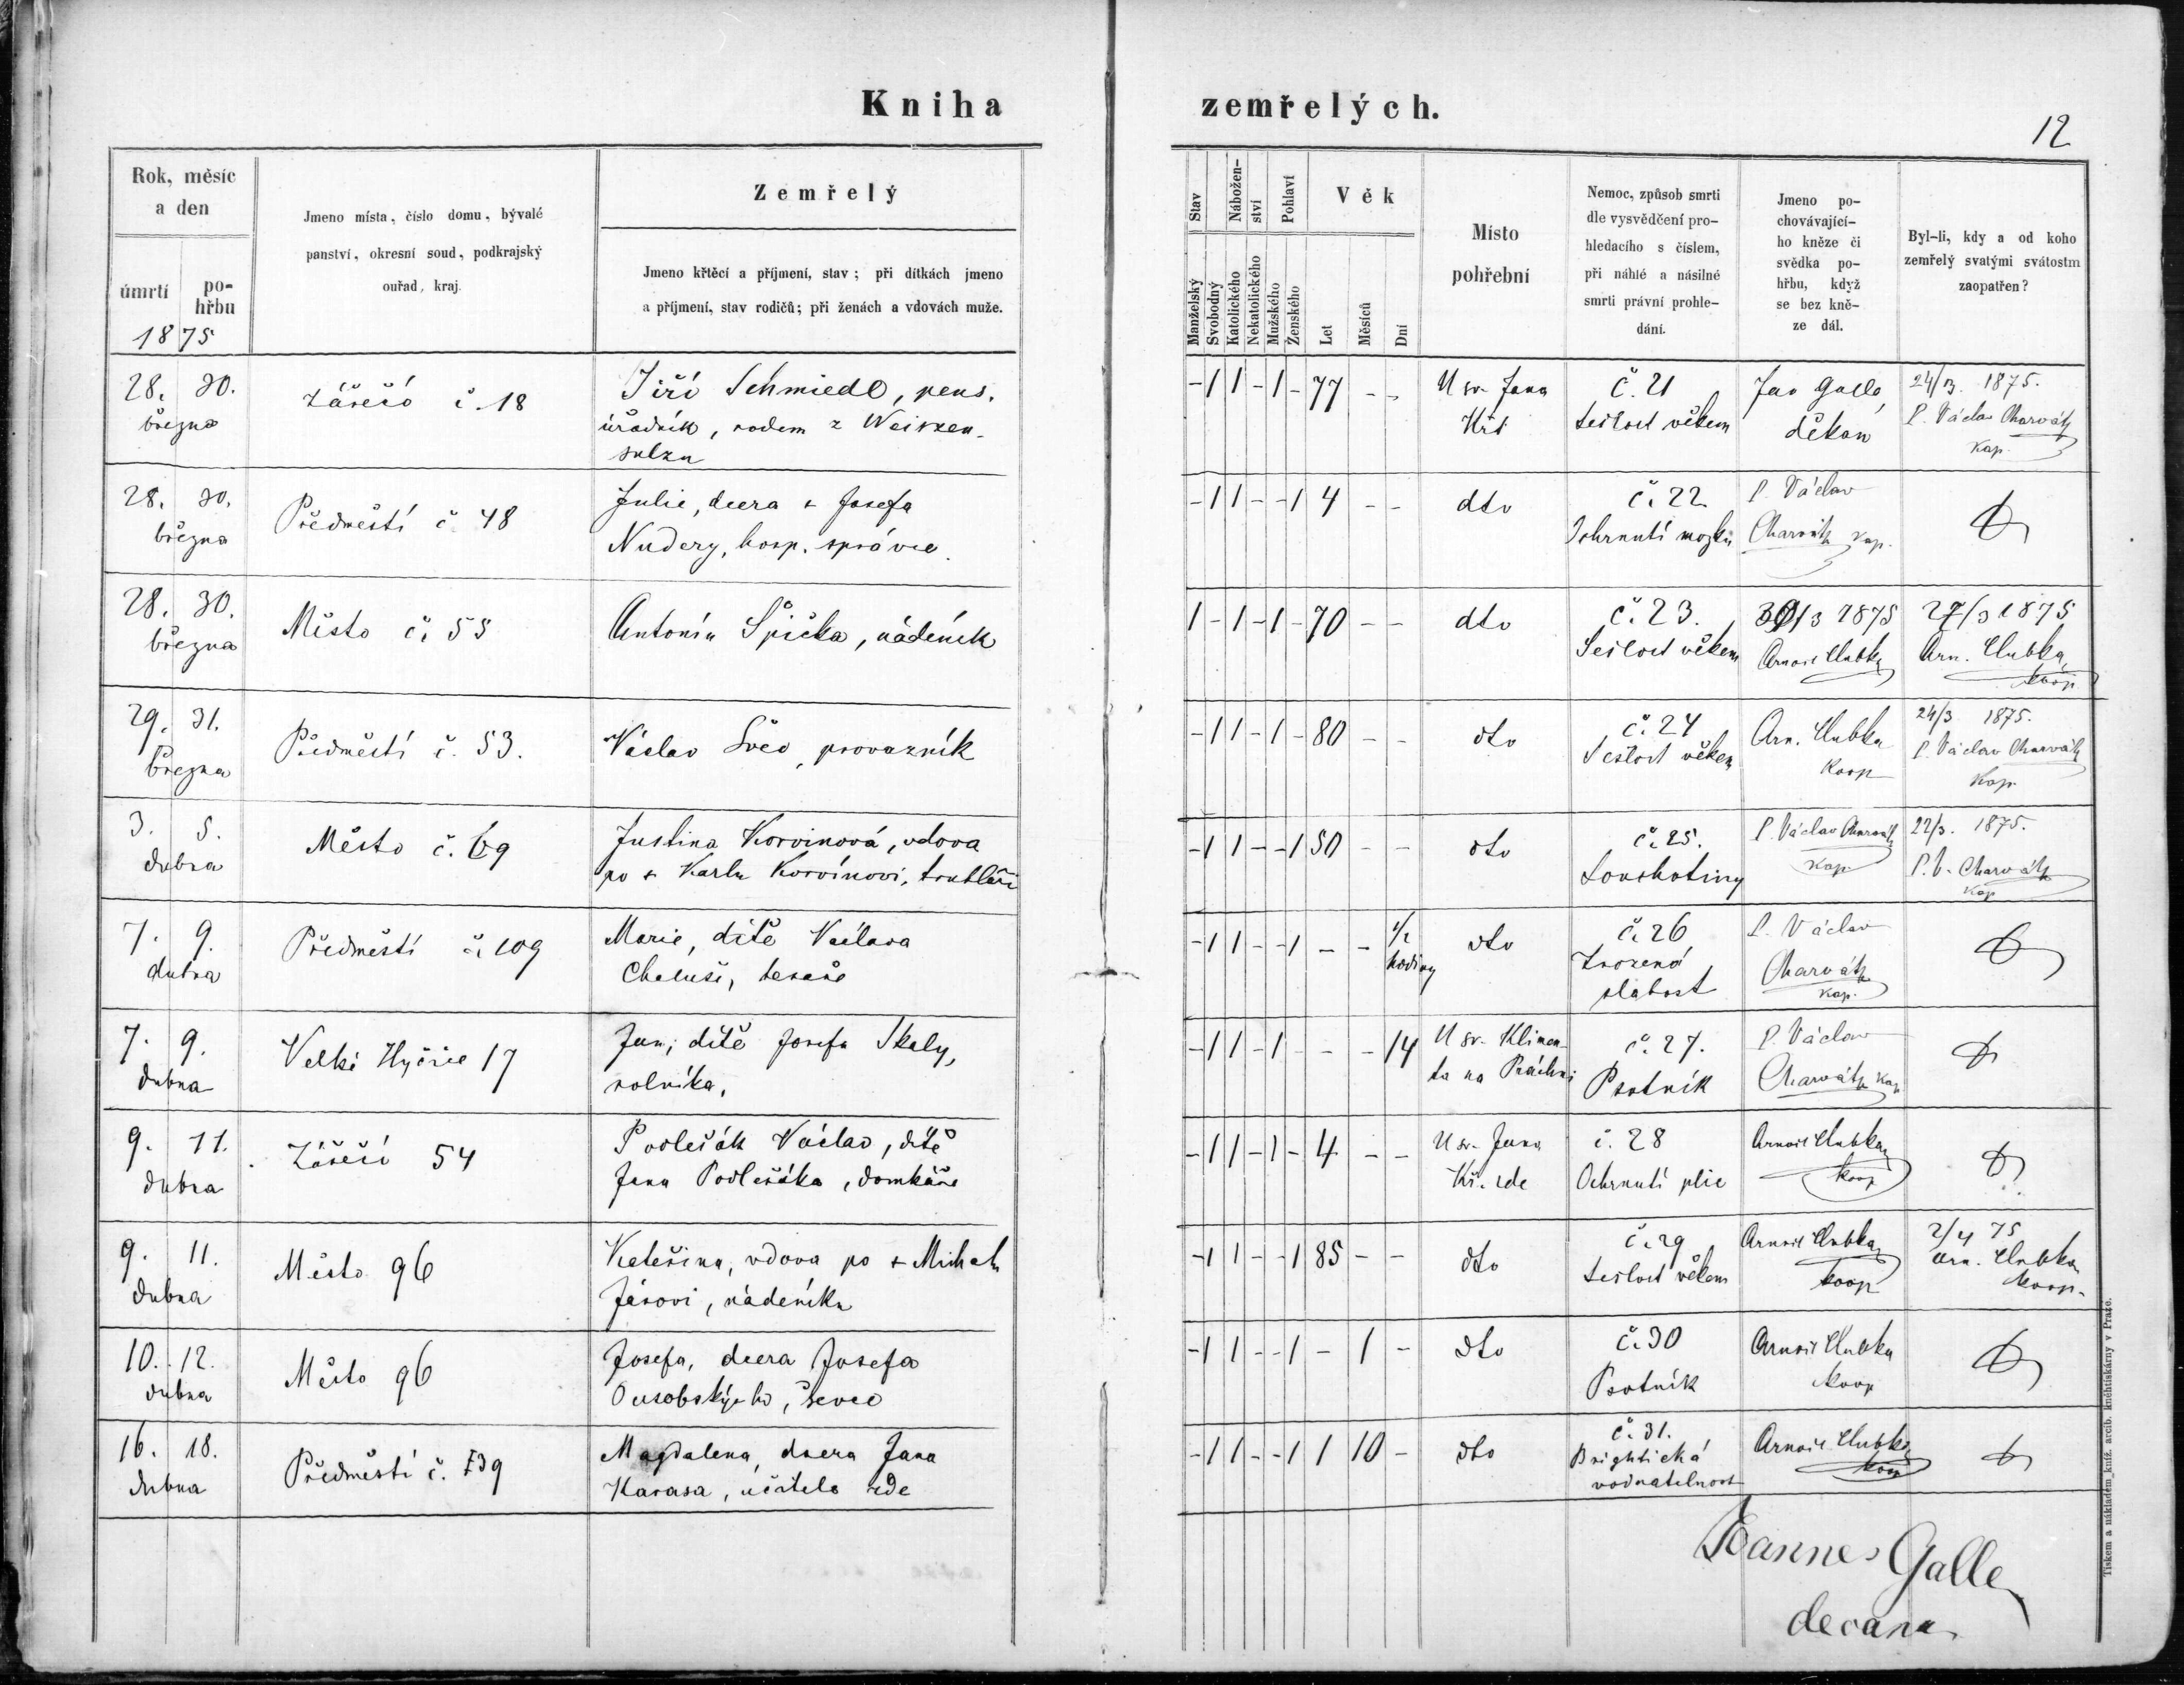 Kniha zemřelých.
12
Rok, měsíc
a den
úmrtí
po-
hřbu
1875
Jmeno místa, číslo domu, bývalé
panství, okresní soud, podkrajský
ouřad, kraj.
Zemřelý
Jmeno křtěcí a příjmení, stav; při dítkách jmeno
a příjmení, stav rodičů; při ženách a vdovách muže.
Stav
Manželský
Svobodný
Nábožen-
ství
Katolického
Nekatolického
Pohlaví
Mužského
Ženského
Věk
Let
Měsíců
Dní
Místo
pohřební
Nemoc, způsob smrti
dle vysvědčení pro-
hledacího s číslem,
při náhlé a násilné
smrti právní prohle-
dání.
Jmeno po-
chovávající-
ho kněze či
svědka po-
hřbu, když
se bez kně-
ze dál.
Byl-li, kdy a od koho
zemřelý svatými svátostm
zaopatřen?
28. 30.
března
Zářečí č. 18
Jiří Schmiedl, pens.
úřadník, rodem z Weiszen-
sulzu
- 1 1 - 1 - 77 - -
U sv. Jana
Křt
č. 21
Sešlost věkem
Jan Galle,
děkan
24/3. 1875.
P. Václav Charvát
kap.
28. 30.
března
Předměstí č. 48
Julie, dcera + Josefa
Nudery, hosp. správce.
- 1 1 - - 1 4 - -
dto
č. 22
Ochrnutí mozku
P. Václav
Charvát kap.
28. 30.
března
Město č. 55
Antonín Špička, nádeník
1 - 1 - 1 - 70 - -
dto
č. 23.
Sešlost věkem
30/3 1875
Arnošt Hubka
27/3 1875
Arn. Hubka,
koop
29. 31.
Března
Předměstí č. 53.
Václav Švec, provazník
- 1 1 - 1 - 80 - -
dto
č. 24
Sešlost věkem
Arn. Hubka
koop
24/3 1875.
P. Václav Charvát
kap.
3. 5.
dubna
Město č. 69
Justina Korvinová, vdova
po + Karlu Korvínovi, truhláři
- 1 1 - - 1 50 - -
dto
č. 25.
Souchotiny
P. Václav Charvát
kap
22/3. 1875.
P. V. Charvát
kap
7. 9.
dubna
Předměstí č. 109
Marie, dítě Václava
Chaluši, tesaře
- 1 1 - - 1 - - 1/2
hodiny
dto
č. 26
Zrozená
slabost
P. Václav
Charvát
kap.
7. 9.
dubna
Velké Hyčice 17
Jan, dítě Josefa Skaly,
rolníka.
- 1 1 - 1 - - - 14
U sv. Klimen-
ta na Práchni
č. 27.
Psotník
P. Václav
Charvát kap
9. 11.
dubna
Zářečí 54
Podlešák Václav, dítě
Jana Podlešáka, domkáře
- 1 1 - 1 - 4 - -
U sv. Jana
Kř. zde
č. 28
Ochrnutí plic
Arnošt Hubka
koop
9. 11.
dubna
Město 96
Kateřina, vdova po + Michalu
Járovi, nádeníku
- 1 1 - - 1 85 - -
dto
č. 29
Sešlost věkem
Arnošt Hubka
koop
2/4 75
Arn. Hubka
koop.
10. 12.
dubna
Město 96
Josefa, dcera Josefa
Ousobskýho, ševce
- 1 1 - - 1 - 1 -
dto
č. 30
Psotník
Arnošt Hubka
koop
16. 18.
dubna
Předměstí č. 139
Magdalena, dcera Jana
Karasa, učitele zde
- 1 1 - - 1 1 10 -
dto
č. 31.
Brightická
vodnatelnost
Arnošt Hubka
koop
Joannes Galle
decanus
Tiskem a nákladem kníž. arcib. kněhtiskárny v Praze.